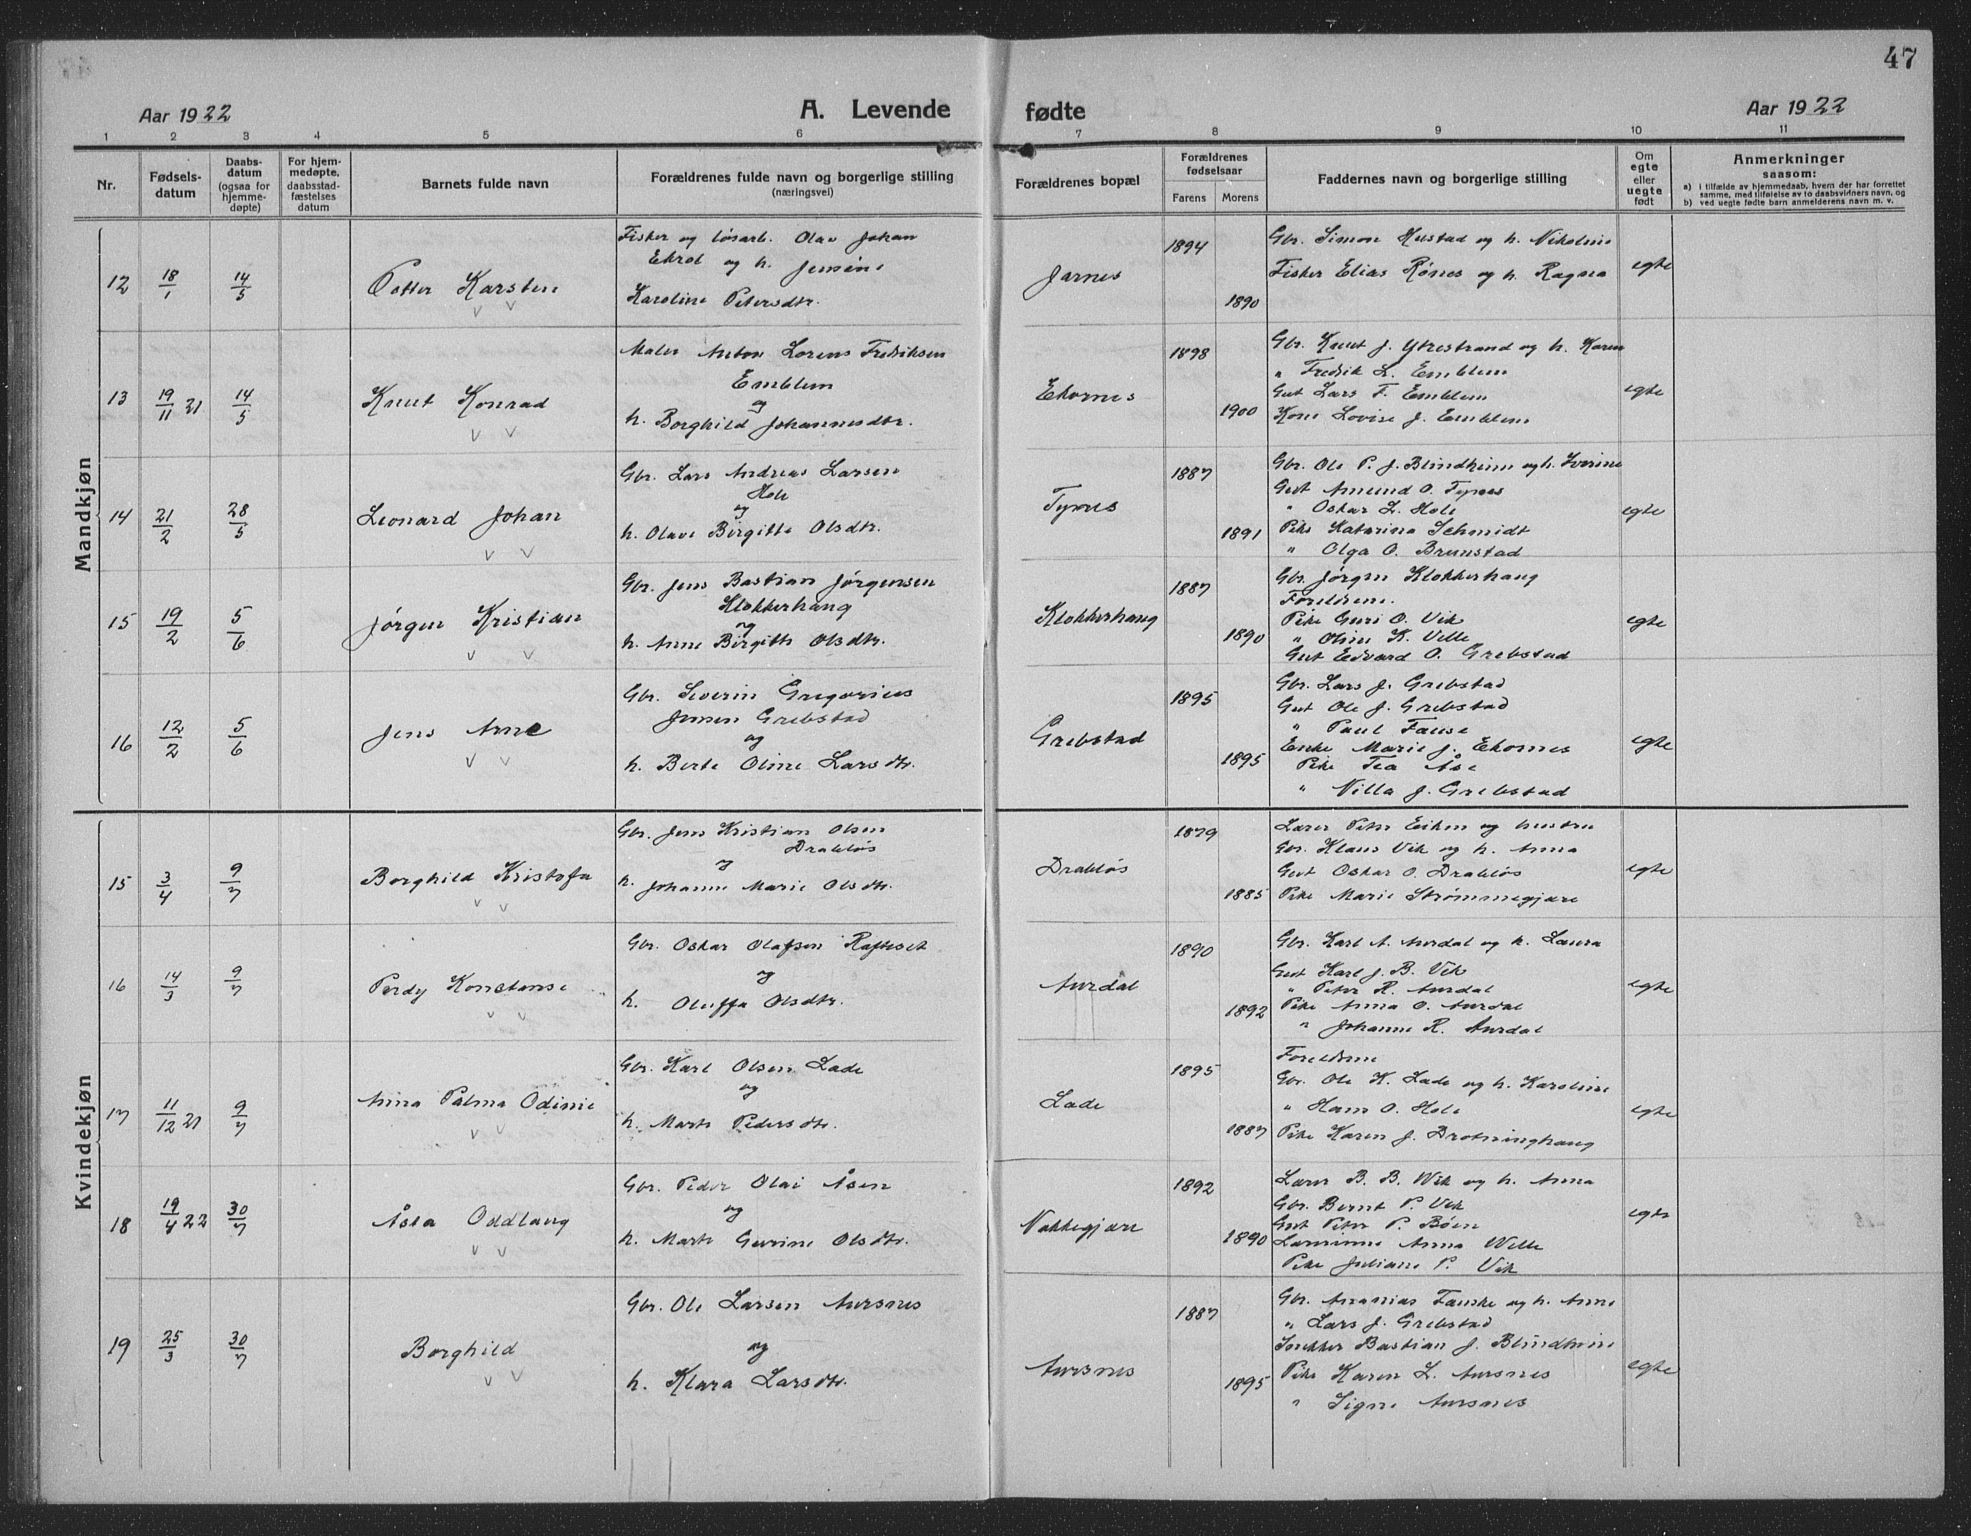 47
Aar 1922
A. Levende
fødte
Aar 1922
1 2 3 4 5 6 7 8 9 10 11
Nr.
Fødsels-
datum
Daabs-
datum
(ogsaa for
hjemme-
døpte)
For hjem-
medøpte,
daabsstad-
fæstelses
datum
Barnets fulde navn
Forældrenes fulde navn og borgerlige stilling
(næringsvei)
Forældrenes bopæl
Forældrenes
fødselsaar
Farens
Morens
Faddernes navn og borgerlige stilling
Om
egte
eller
uegte
født
Anmerkninger
saasom:
a) i tilfælde av hjemmedaab, hvem der har forrettet
samme, med tilføielse av to daabsvidners navn, og
b) ved uegte fødte barn anmelderens navn m. v.
Mandkjøn
12
18/1
14/5
Potter Karsten
Fisker og løsarb. Olav Johan
Ekrol og h. Jensine
Karoline Petersdtr.
Jarnes
1894
1890
Gbr. Simon Hustad og h. Nikoline
Fisker Elias Rønes og h. Ragna
egte
13
19/11 21
14/5
Knut Konrad
Maler Anton Lorens Fredriksen
Emblem
og
h. Borghild Johannesdtr.
Ekornes
1898
1900
Gbr. Knut J. Ytrestrand og h. Karen
" Fredrik L. Emblem
Gut Lars F. Emblem
Kone Lovise J. Emblem
egte
14
21/2
28/5
Leonard Johan
Gbr. Lars Andreas Larsen
Hole
og
h. Olave Birgitte Olsdtr.
Tynes
1887
1891
Gbr. Ole P. J. Blindheim og h. Iverine
Gut Amund O. Tynes
" Oskar L. Hole
Pike Katarina Schmidt
" Olga O. Brunstad
egte
15
19/2
5/6
Jørgen Kristian
Gbr. Jens Bastian Jørgensen
Klokkerhaug
og
h. Anne Birgitte Olsdtr.
Klokkerhaug
1887
1890
Gbr. Jørgen Klokkerhaug
Foreldrene.
Pike Guri O. Vik
" Oline K. Velle
Gut Edvard O. Grebstad
egte
16
12/2
5/6
Jens Arne
Gbr. Severin Gregorius
Jensen Grebstad
og
h. Berte Oline Larsdtr.
Grebstad
1895
1895
Gbr. Lars J. Grebstad
Gut Ole J. Grebstad
" Paul Fause
Enke Marie J. Ekornes
Pike Tea Åse
" Villa J. Grebstad
egte
Kvindekjøn
15
3/4
9/7
Borghild Kristofa
Gbr. Jens Kristian Olsen
Drabløs
og
h. Johanne Marie Olsdtr.
Drabløs
1879
1885
Lærer Peter Eiken og hustru
Gbr. Klaus Vik og h. Anna
Gut Oskar O. Drabløs
Pike Marie Strømmegjære
egte
16
14/3
9/7
Perdy Konstanse
Gbr. Oskar Olafsen Rafteset
og
h. Oluffa Olsdtr.
Aurdal
1890
1892
Gbr. Karl A. Aurdal og h. Laura
Gut Karl J. B. Vik
" Peter R. Aurdal
Pike Anna O. Aurdal
" Johanne R. Aurdal
egte
17
11/12 21
9/7
Anna Palma Odinie
Gbr. Karl Olsen Lade
og
h. Marte Pedersdtr.
Lade
1895
1887
Foreldrene
Gbr. Ole K. Lade og h. Karoline
" Hans O. Hole
Pike Karen J. Drotninghaug
egte
18
19/4 22
30/7
Åsta Oddlaug
Gbr. Peder Olai Åsen
og
h. Marte Gurine Olsdtr.
Nakkegjære
1892
1890
Lærer B. B. Vik og h. Anna
Gbr. Bernt P. Vik
Gut Peter P. Bøen
Lærerinne Anna Welle
Pike Juliane P. Vik
egte
19
25/3
30/7
Borghild
Gbr. Ole Larsen Aursnes
og
h. Klara Larsdtr.
Aursnes
1887
1895
Gbr. Ananias Fauske og h. Anne
" Lars J. Grebstad
Snekker Bastian J. Blindheim
Pike Karen L. Aursnes
" Signe Aursnes
egte